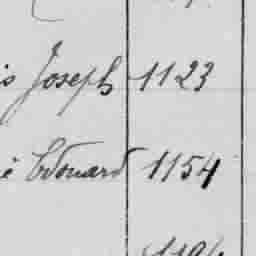 Joseph 1123
Edouard 1154